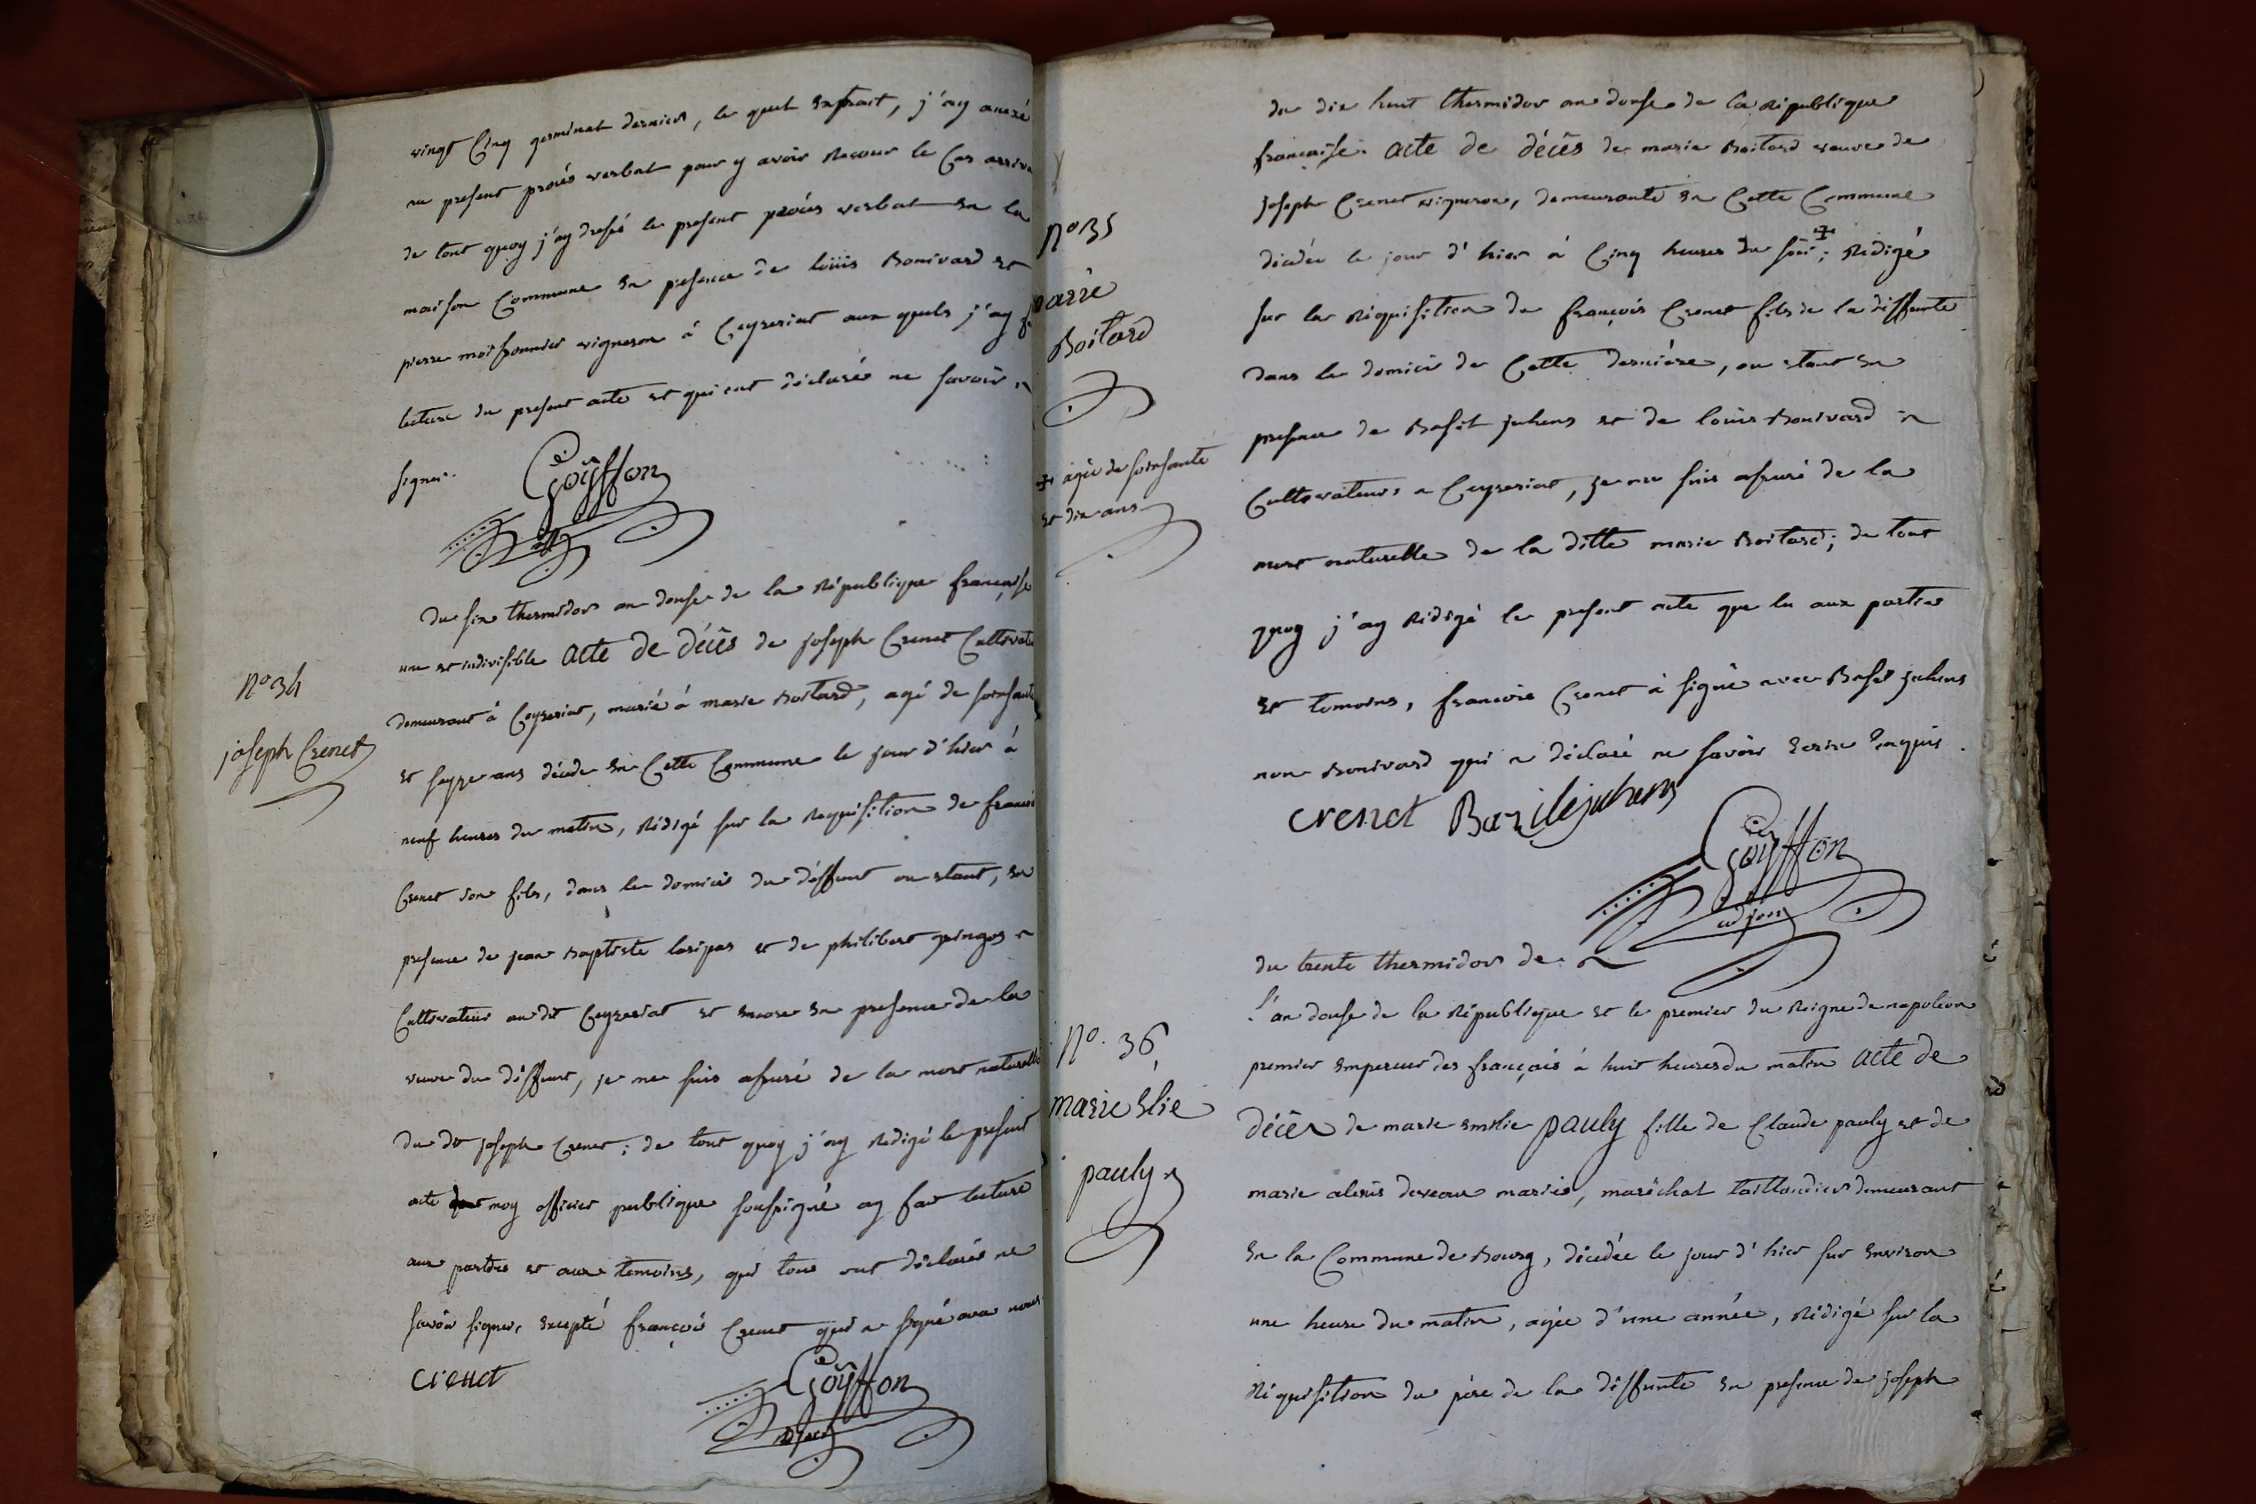 vingt Cinq germinal dernier, le quel Extrait, j'ay anexé
au present procès verbal pour y avoir Recour le Cas arriva
de tout quoy j'ay dressé le present procès verbal En la
maison Commune En presence de loüis Bonivard et
pierre moissonnier vigneron à Ceyzeriat aux quels j'ay f
lecture du present acte et qui ont déclaré ne savoir
signer.
Goÿffon
adj
du six thermidor an douse de la République française
une et indivisible acte de décès de joseph Crenet Cultivate
N° 34
demeurant à Ceyzeriat, marié à marie Boitard, agé de soixsante
joseph Crenet
et seyze ans décédé En Cette Commune le jour d'hier à
neuf heures du matin, Rédigé sur la Requisition de françoi
Crenet son fils, dans le domicil du déffunt ou etant, En
presence de jean Baptiste laripas et de philibert pingos
Cultivateur au dt Ceyzeriat et Encore En presence de la
veuve du déffunt, je me suis assuré de la mort naturelle
du dt joseph Crenet; de tout quoy j'ay Redigé le present
acte moy officier publique soussigné ay fait lecture
aux parties et aux temoins, qui tous ont déclarés ne
savoir signer, Excepté françois Crenet qui a signé avec nous
crenet
Goÿffon
adjoint
du dix huit thermidor an douse de la République
française. acte de décès de marie Boitard veuve de
joseph Crenet vigneron, demeurante En Cette Commune
N° 35
décédée le jour d'hier à Cinq heures du soir; Rédigé
marie
sur la Réquisition de françois Crenet fils de la deffunte
Boitard
dans le domicil de Cette derniére, ou etant En
presence de Basil juhens et de louis Bonivard
agée de soixsante
et dix ans
Cultivateurs a Ceyzeriat, je me suis assuré de la
mort naturelle de la ditte marie Boitard; de tout
quoy j'ay Rédigé le present acte que lu aux parties
et temoins, françois Crenet à signé avec Basil juhens
non Bonivard qui a déclaré ne savoir Ecrire Enquis.
crenet Bazile juhens
Goÿffon
adjoint
du trente thermidor de
l'an douse de la République et le premier du Reigne de napoleon
N°. 36
premier Empereur des français à huit heures du matin acte de
marie Elie
décès de marie Emilie pauly fille de Claude pauly et de
pauly
marie alexis deveaux mariés, maréchal taillandier demeurant
En la Commune de Bourg, décédée le jour d'hier sur Environ
une heure du matin, agée d'une année, Rédigé sur la
Réquisition du père de la deffunte En presence de joseph